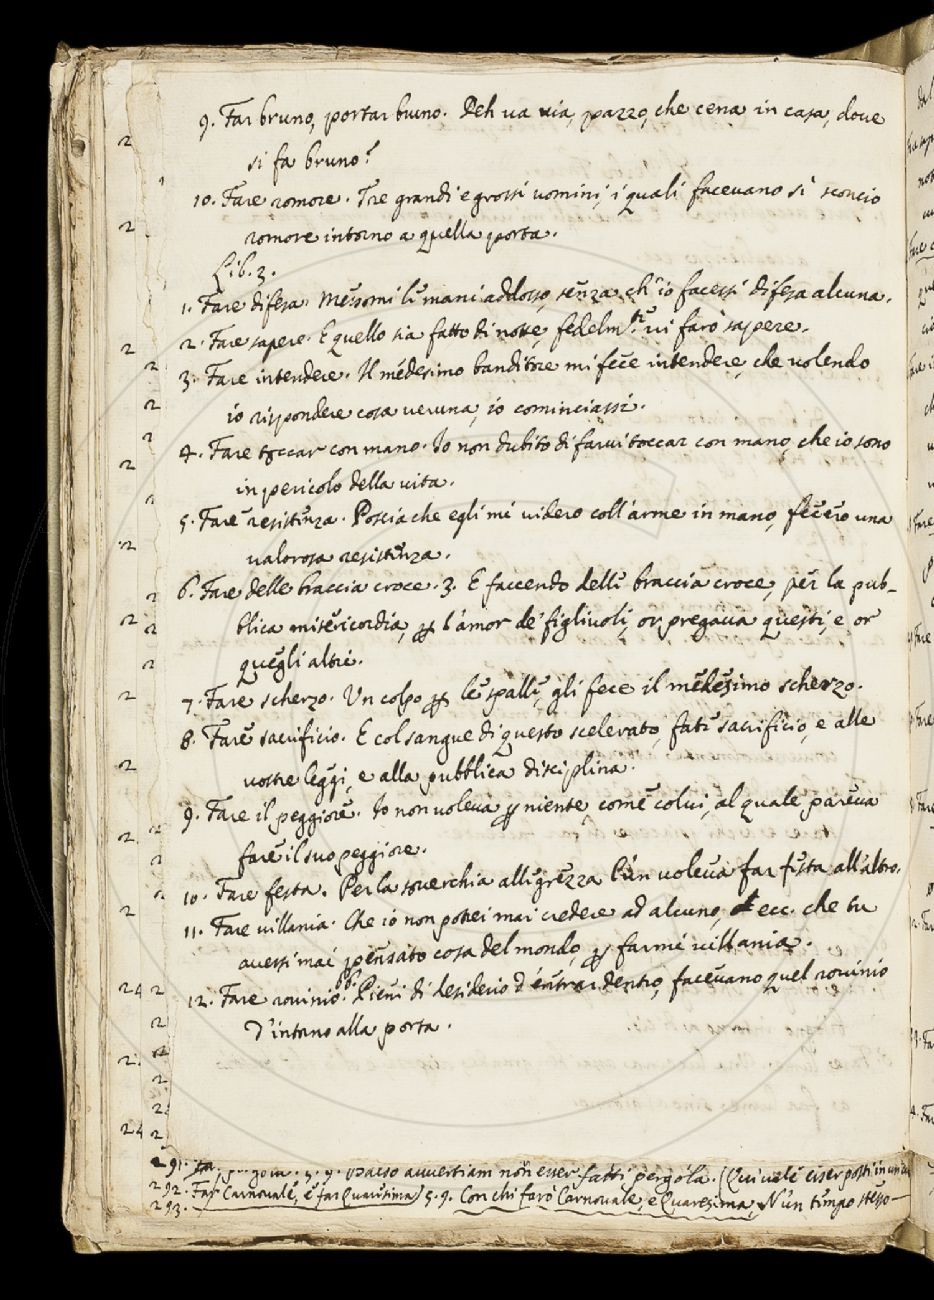 9. Far bruno, portar bruno. Deh va via, pazzo, che cena in casa, dove
si fa bruno?
10. Fare romore. Tre grandi e grossi uomini, i quali facevano sì sconcio
romore intorno a quella porta.
Lib. 3.
1. Fare difesa. Messomi le mani addosso, senza ch'io facessi difesa alcuna.
2. Fare sapere. E quello sia fatto di notte, fedelm.te vi farò sapere.
3. Fare intendere. Il medesimo banditore mi fece intendere, che volendo
io rispondere cosa veruna, io cominciassi.
4. Fare toccar con mano. Io non dubito di farvi toccar con mano, che io sono
in pericolo della vita.
5. Fare resistenza. Poscia che egli mi videro coll'arme in mano, fecero una
valorosa resistenza.
6. Fare delle braccia croce. 3. E faccendo delle braccia croce, per la pub-
blica misericordia, per l'amor de' figliuoli, or pregava questi, e or
quegli altri.
7. Fare scherzo. Un colpo per le spalle, gli fece il medesimo scherzo.
8. Fare sacrificio. E col sangue di questo scelerato, fate sacrificio, e alle
vostre leggi, e alla pubblica disciplina.
9. Fare il peggiore. Io non voleva per niente, come colui, al quale pareva
fare il suo peggiore.
10. Fare festa. Per la soverchia allegrezza l'un voleva far festa all'altro.
11. Fare villania. Che io non potrei mai credere ad alcuno, ecc. che tu
avessi mai pensato cosa del mondo, per farmi villania.
12. Fare rovinio. Pieni di desiderio d'entrar dentro, facevano quel rovinio
d'intorno alla porta.
291. avvertiam non esser fatti pergola. (Qui vale esser posti in
292. Far Carnovale, e far Quaresima) 5. 9. Con chi farò Carnovale, e Quaresima, N'un tempo stesso
293.